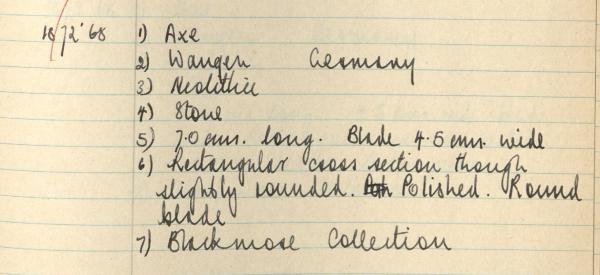 1872'68 1) Axe
2) Wangen Germany
3) Neolithic
4) Stone
5) 7.0 cms. long. Blade 4.5 cms. wide
6) Rectangular cross section though
slightly rounded. Polished. Round
blade
7) Blackmore Collection